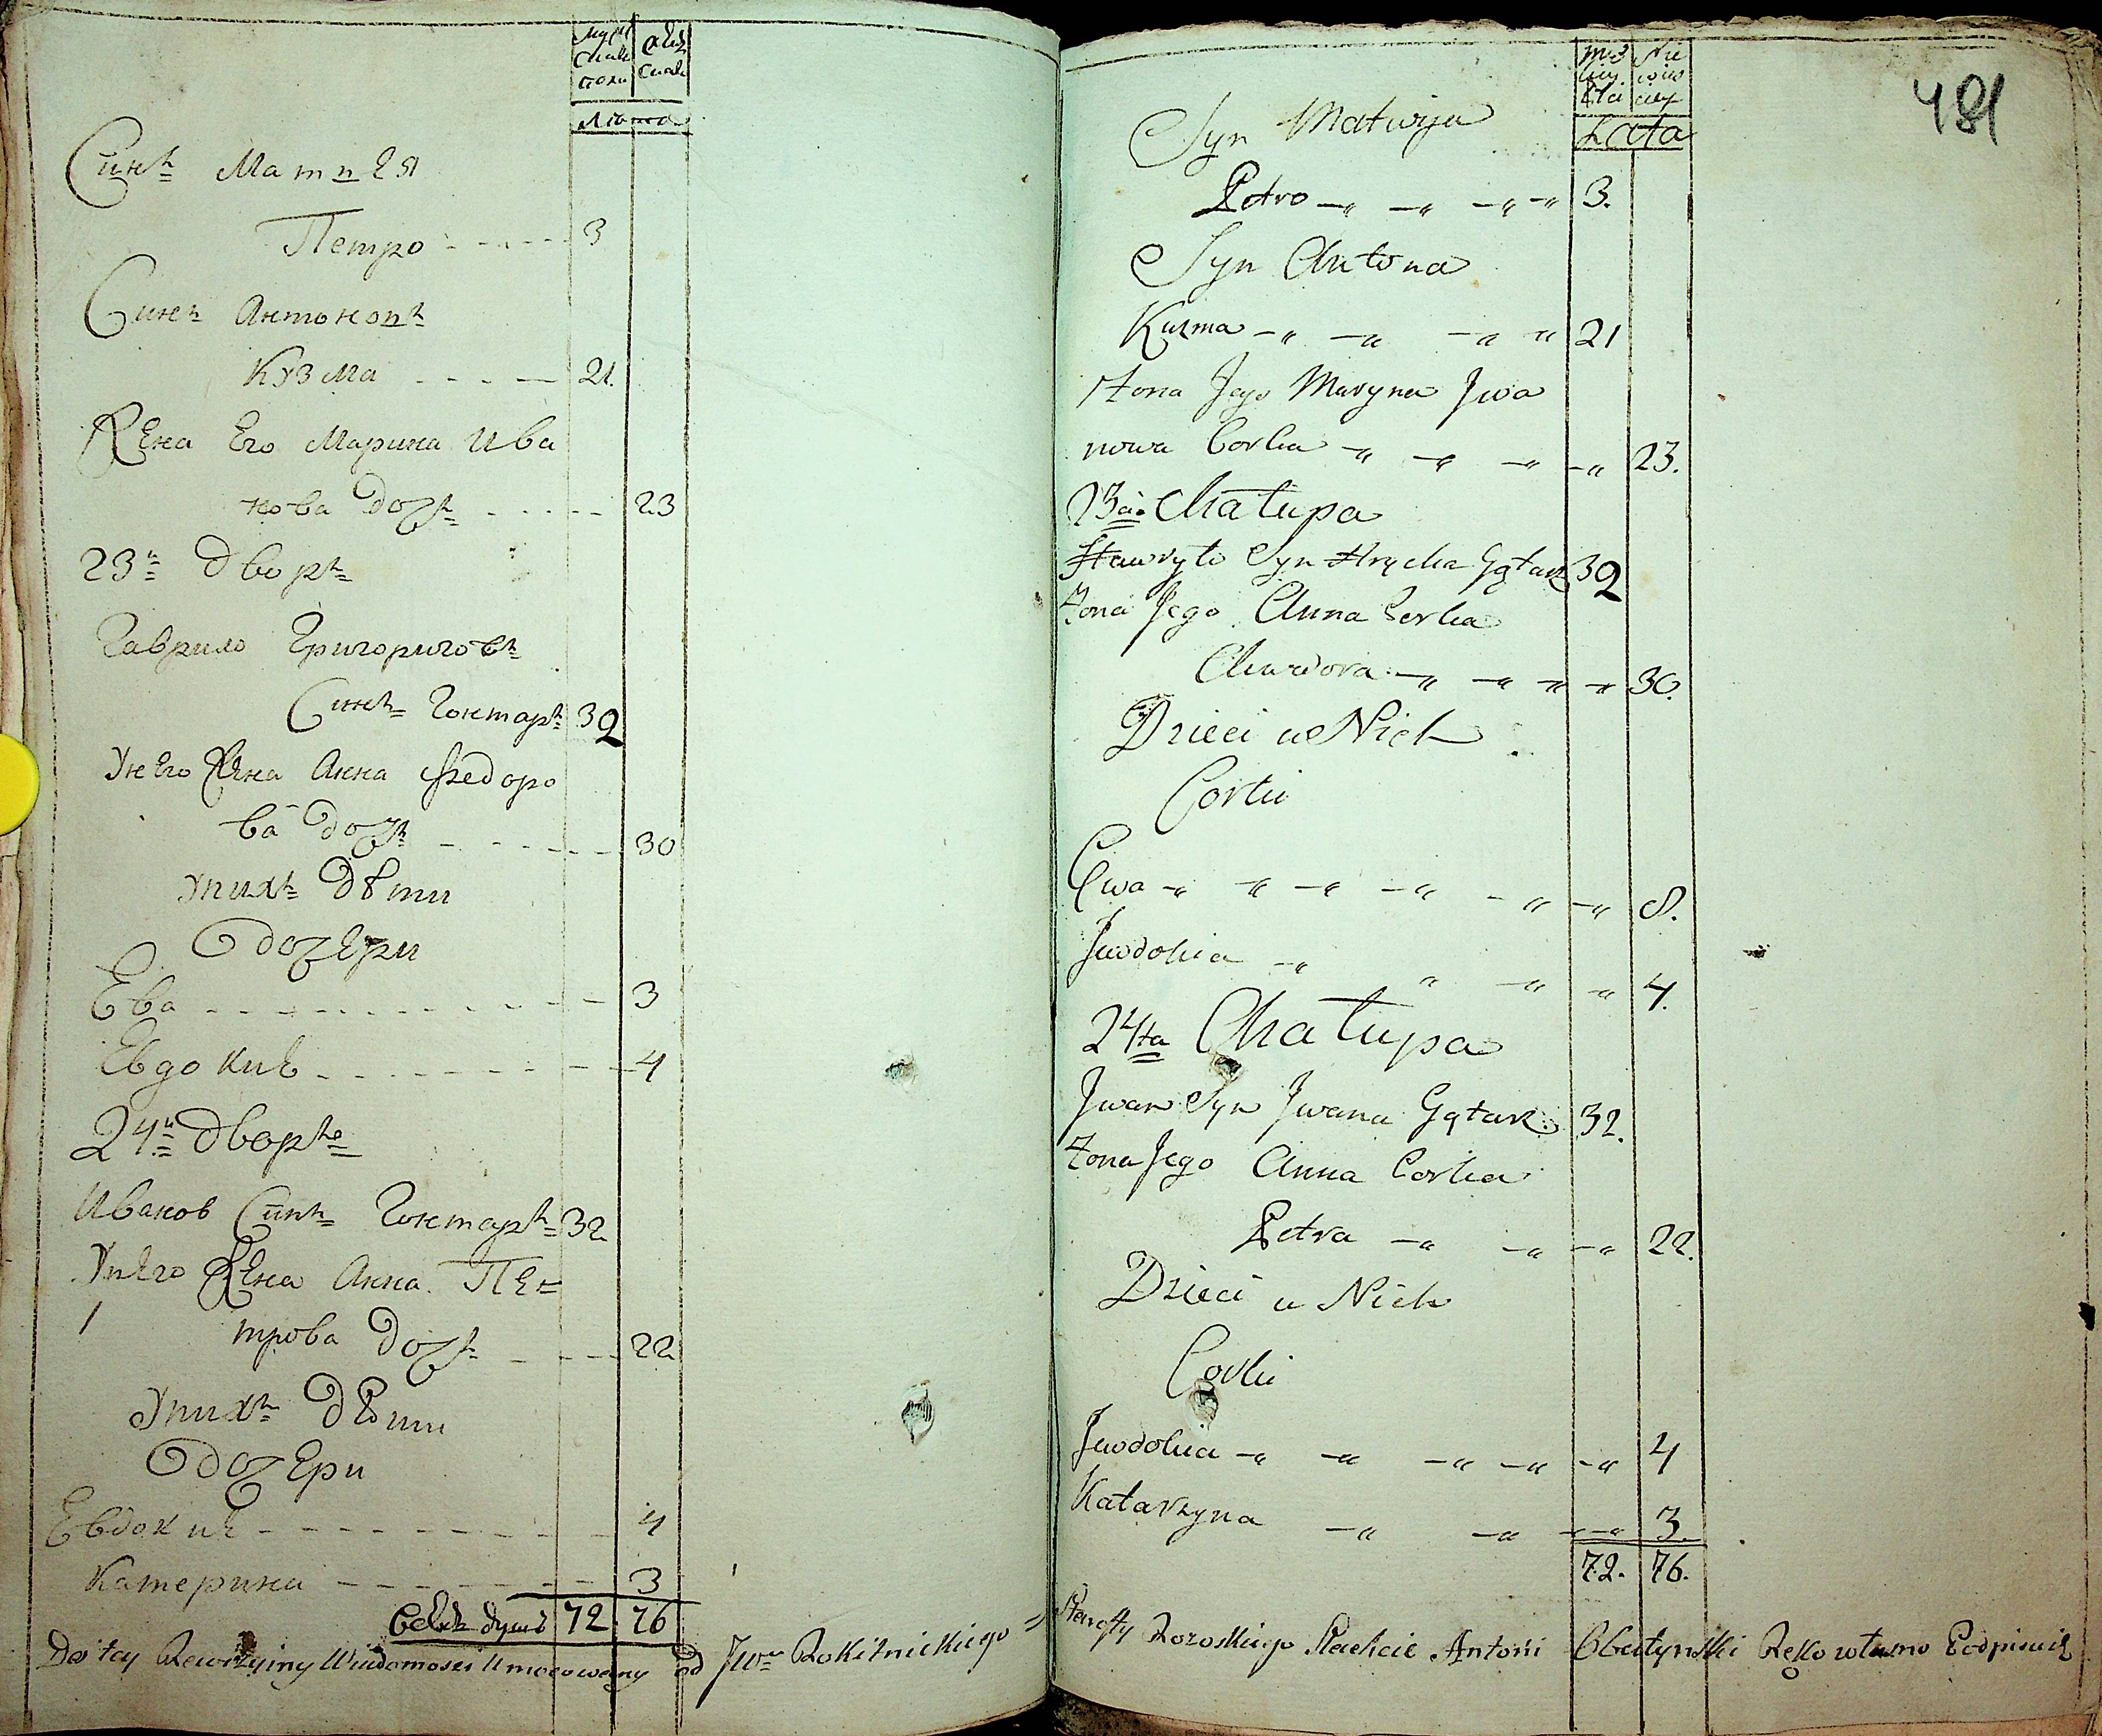 Лѣта
Синъ Матвея
Петро 3
Синъ Антоновъ
Кузма 21.
Жена Его Марина Ива
нова дочъ 23
23й дворъ
Гаврило Григориговъ
Синъ Гонтаръ 32
У него Жена Анна Федоро
ва дочъ 30
У нихъ дѣти
дочери
Ева 3
Евдокиѣ 4
24й дворъ
Иванов Синъ Гонтаръ 32
У него Жена Анна Пе=
трова дочъ 22
У нихъ дѣти
дочери
Евдокиѣ 4
Катерина 3
72 76
Lata
Syn Matwija
Petro 3.
Syn Antona
Kuzma 21
Żona Jego Maryna Jwa
nowa Corka 23.
23cia Chałupa
Hawryło Syn Hrycka Gątarz 32
Żona Jego Anna Corka
Chwedora 30.
Dzieci u Nich
Corki
Ewa 8.
Jewdokia 4.
24ta Chałupa
Jwan Syn Jwana Gątarz 32.
Żona Jego Anna Corka
Petra 22.
Dzieci u Nich
Corki
Jewdokia 4
Katarzyna 3.
72. 76.
481
Do tey Rewizyiny Wiadomosci Umocowany od Jwo Rokitnickiego = Starosty Szlachcic Antoni Obertynski Ręką własno Podpisuie